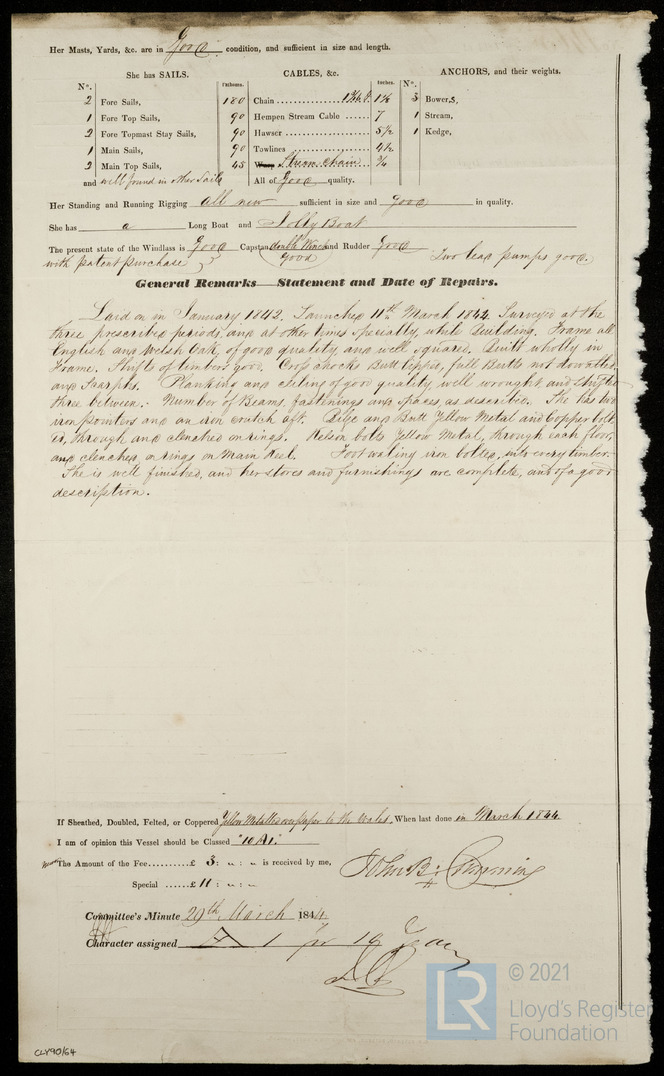 Her Masts, Yards, &c. are in Good condition, and sufficient in size and length.
She has SAILS. CABLES, &c. ANCHORS, and their weights.
N°. Fathoms. Inches. N°.
2 Fore Sails, 180 Chain 1 1/2 3 Bowers,
1 Fore Top Sails, 90 Hempen Stream Cable 7 1 Stream,
2 Fore Topmast Stay Sails, 90 Hawser 5 1/2 1 Kedge,
1 Main Sails, 90 Towlines 4 1/2
2 Main Top Sails, 45 Warp Stream Chain 3/4
and well found in other Sails All of Good quality.
Her Standing and Running Rigging all new sufficient in size and good in quality.
She has a Long Boat and Jolly Boat
The present state of the Windlass is Good Capstan double Winch and Rudder Good Two lead pumps good.
with patent purchase Good
General Remarks—Statement and Date of Repairs.
Laid on in January 1842. Launched 11th March 1844. Surveyed at the
three prescribed periods, and at other times specially, while Building. Frame all
English and Welsh Oak, of good quality and well squared. Built wholly in
Frame. Shifts of timbers good. Cross chocks Butt lipped, full Butts not dowelled
and Scarphs. Planking and ceiling of good quality, well wrought and shifted
three between. Number of Beams, fastenings and spaces, as described. She has two
iron pointers and an iron crutch aft. Bilge and Butt Yellow Metal and Copper bolt
ed, through and clenched on rings. Kelson bolts Yellow Metal, through each floor,
and clenched on rings on Main Keel. Foot waling iron bolted, into every timber.
She is well finished, and her stores and furnishings are complete, and of a good
description.
If Sheathed, Doubled, Felted, or Coppered Yellow Metalled over paper to the Wales, When last done in March 1844
I am of opinion this Vessel should be Classed "10 A1."
The Amount of the Fee..........£ 3 : " : " is received by me,
Special ......£ 11 : " : "
John B. Cumming
Committee's Minute 29th March 1844
Character assigned A 1 for 10 Years
© 2021
LR
Lloyd's Register
Foundation
CLY90/64